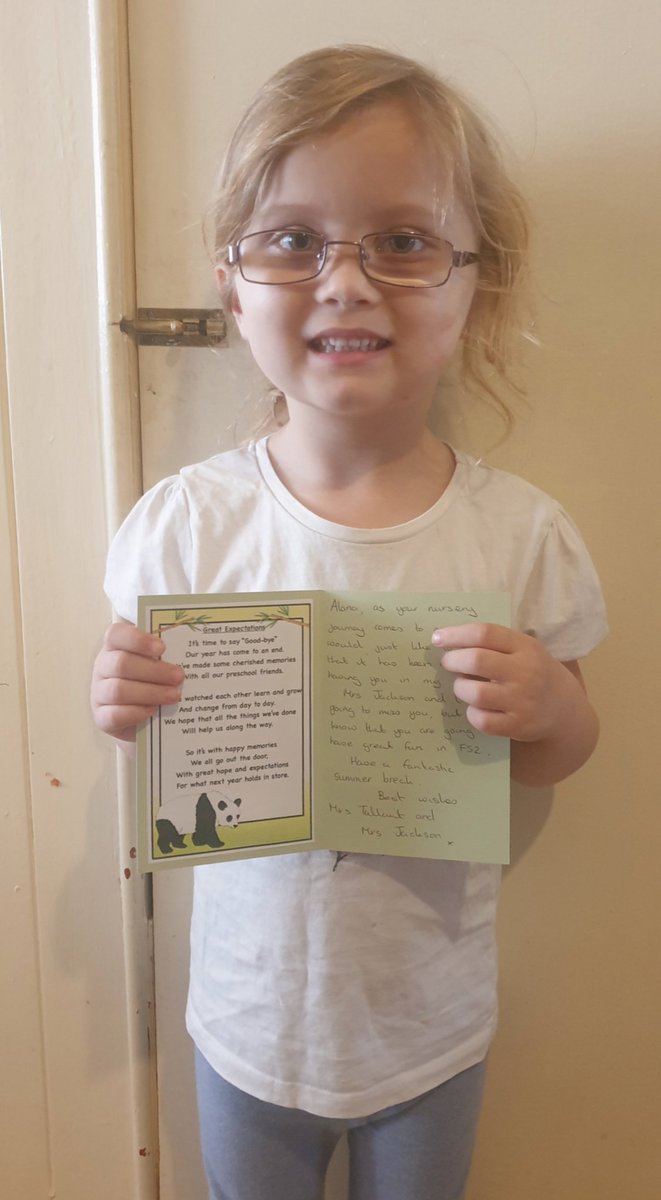 Great Expectations
It's time to say "Good-bye"
Our year has come to an end.
made some cherished memories
With all our preschool friends.
watched each other learn and grow
And change from day to day.
We hope that all the things we've done
Will help us along the way.
So it's with happy memories
We all go out the door,
With great hope and expectations
For what next year holds in store.
as your nursery
journey comes to
would just like
that it has been
having you in my
Mrs Jackson and
going to miss you, but
know that you are going
have great fun in FS2.
Have a fantastic
summer break.
Best wishes
Mrs Tallant and
Mrs Jackson x